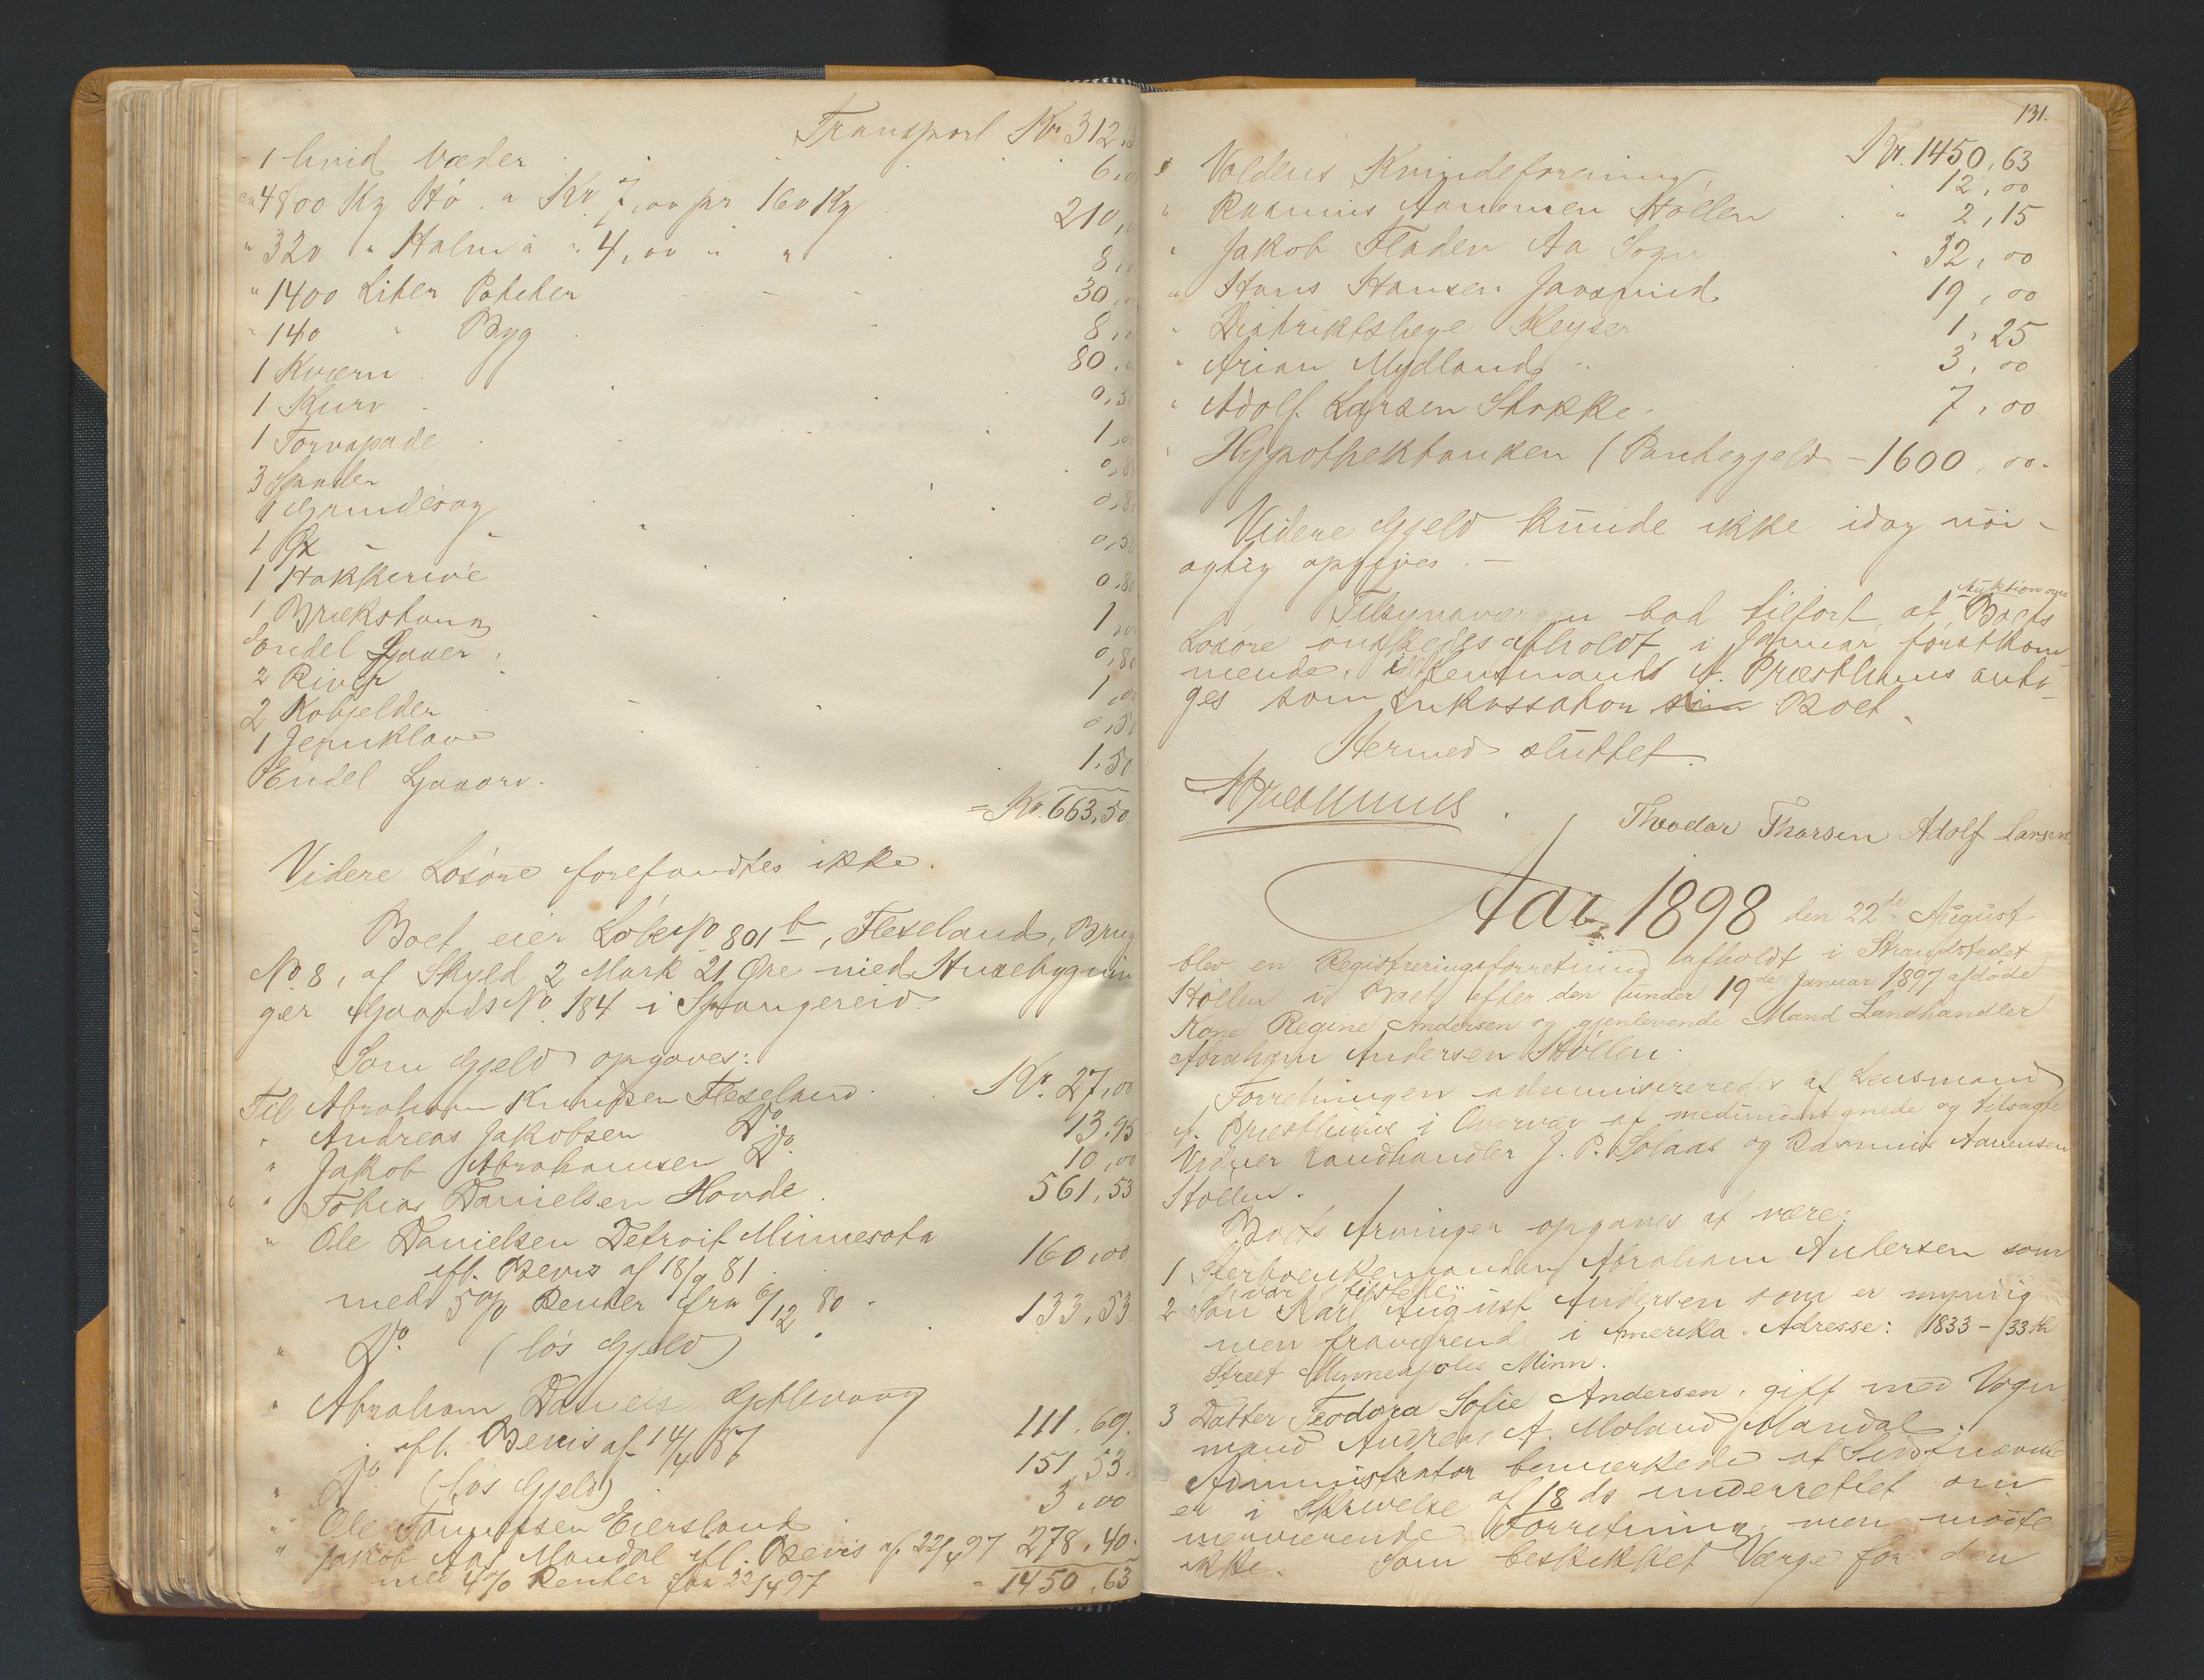 Transport Kr 312,
1 hvid Væder 6,
4800 Kg Hö a Kr 7,00 pr 160 Kg 210,
" 320 " Halm a " 4,00 " " 8,
" 1400 Liter Poteter 30
" 140 " Byg 8,
1 Kværn 80,
1 Kurv 0,5
1 Torvspade 1,
3 Spader 0,8
1 Grindsag 0,8
1 Øx 0,50
1 Hakkerive 0,80
1 Brækstang 1,00
Endel 0,80
2 River 1,00
2 Kobjelder 0,50
1 Jernklave
Endel 1,50
= Kr. 663,50
Videre Lösöre forefandtes ikke.
Boet eier Löbe No 801 b, Fleseland, Brug
No. 8, af Skyld 2 Mark 21 Øre med Husebygnin
ger Gaards No. 184 i Spangereid
Som Gjeld opgaves:
Til Abraham Knudsen Fleseland Kr. 27,00
" Andreas Jakobsen Do. 13,95
" Jakob Abrahamsen Do. 10,00
" Tobias Danielsen Hovde 561,53
" Ole Danielsen Detroit Minnesota
ifl. Bevis af 18/9 81 160,00
med 5 % Renter fra 6/12 80
" Do (lös Gjeld) 133,53
" Abraham Daniels
ifl. Bevis af 14/4 87 111.69.
" Do (lös Gjeld) 151,53.
" Ole Tønnessen Eiersland 3,00
" Jakob Mandal ifl. Bevis af 22/4 97 278.40.
med 4 % Renter fra 22/4 97 = 1450,63
131.
Kr. 1450,63
Voldens Kvindeforening 12,00
" Rasmus Aanensen Höllen " 2,15
" Jakob Fladen Aa Sogn " 32,00
" Hans Hansen 19,00
" Distriktslæge Keyser 1,25
" Arian Mydland 3,00
" Adolf Larsen Stokke 7,00
" Hypothekbanken (Pantegjeld - 1600,00.
Videre Gjeld kunde ikke idag nöi-
agtig opgives. -
Auktion over
Tilsynsværgen bad tilfört, at Boets
Lösöre önskedes afholdt i Januar förstkom-
mende, idet Lensmand A. Præsthuus anta-
ges som Inkassator Boet.
Hermed sluttet.
APræsthuus
Theodor Thorsen Adolf Larsen
Aar 1898 den 22de August
blev en Registreringsforretning afholdt i Strandstedet
Höllen i Boet efter den under 19de Januar 1897 afdöde
Kone Regine Andersen og gjenlevende Mand Landhandler
Abraham Andersen Höllen.
Forretningen administreredes af Lensmand
A. Præsthuus i Overvær af medundertegnede og tilsagte
Vidner Landhandler J. P. Solaas og Rasmus Aanensen
Höllen.
Boets Arvinger opgaves at være:
1 Sterboenkemanden Abraham Andersen som
var tilstede;
2 Sön Karl August Andersen som er myndig
men fraværende i Amerika. Adresse: 1833 - 33th
Street Minneapolis Minn.
3 Datter Teodora Sofie Andersen, gift med Vogn-
mand Andreas A. Moland Mandal.
Administrator bemærkede at Sidstnævnte
er i Skrivelse af 18 ds underrettet om
nærværende Forretning, men mödte
ikke. Som beskikket Værge for den